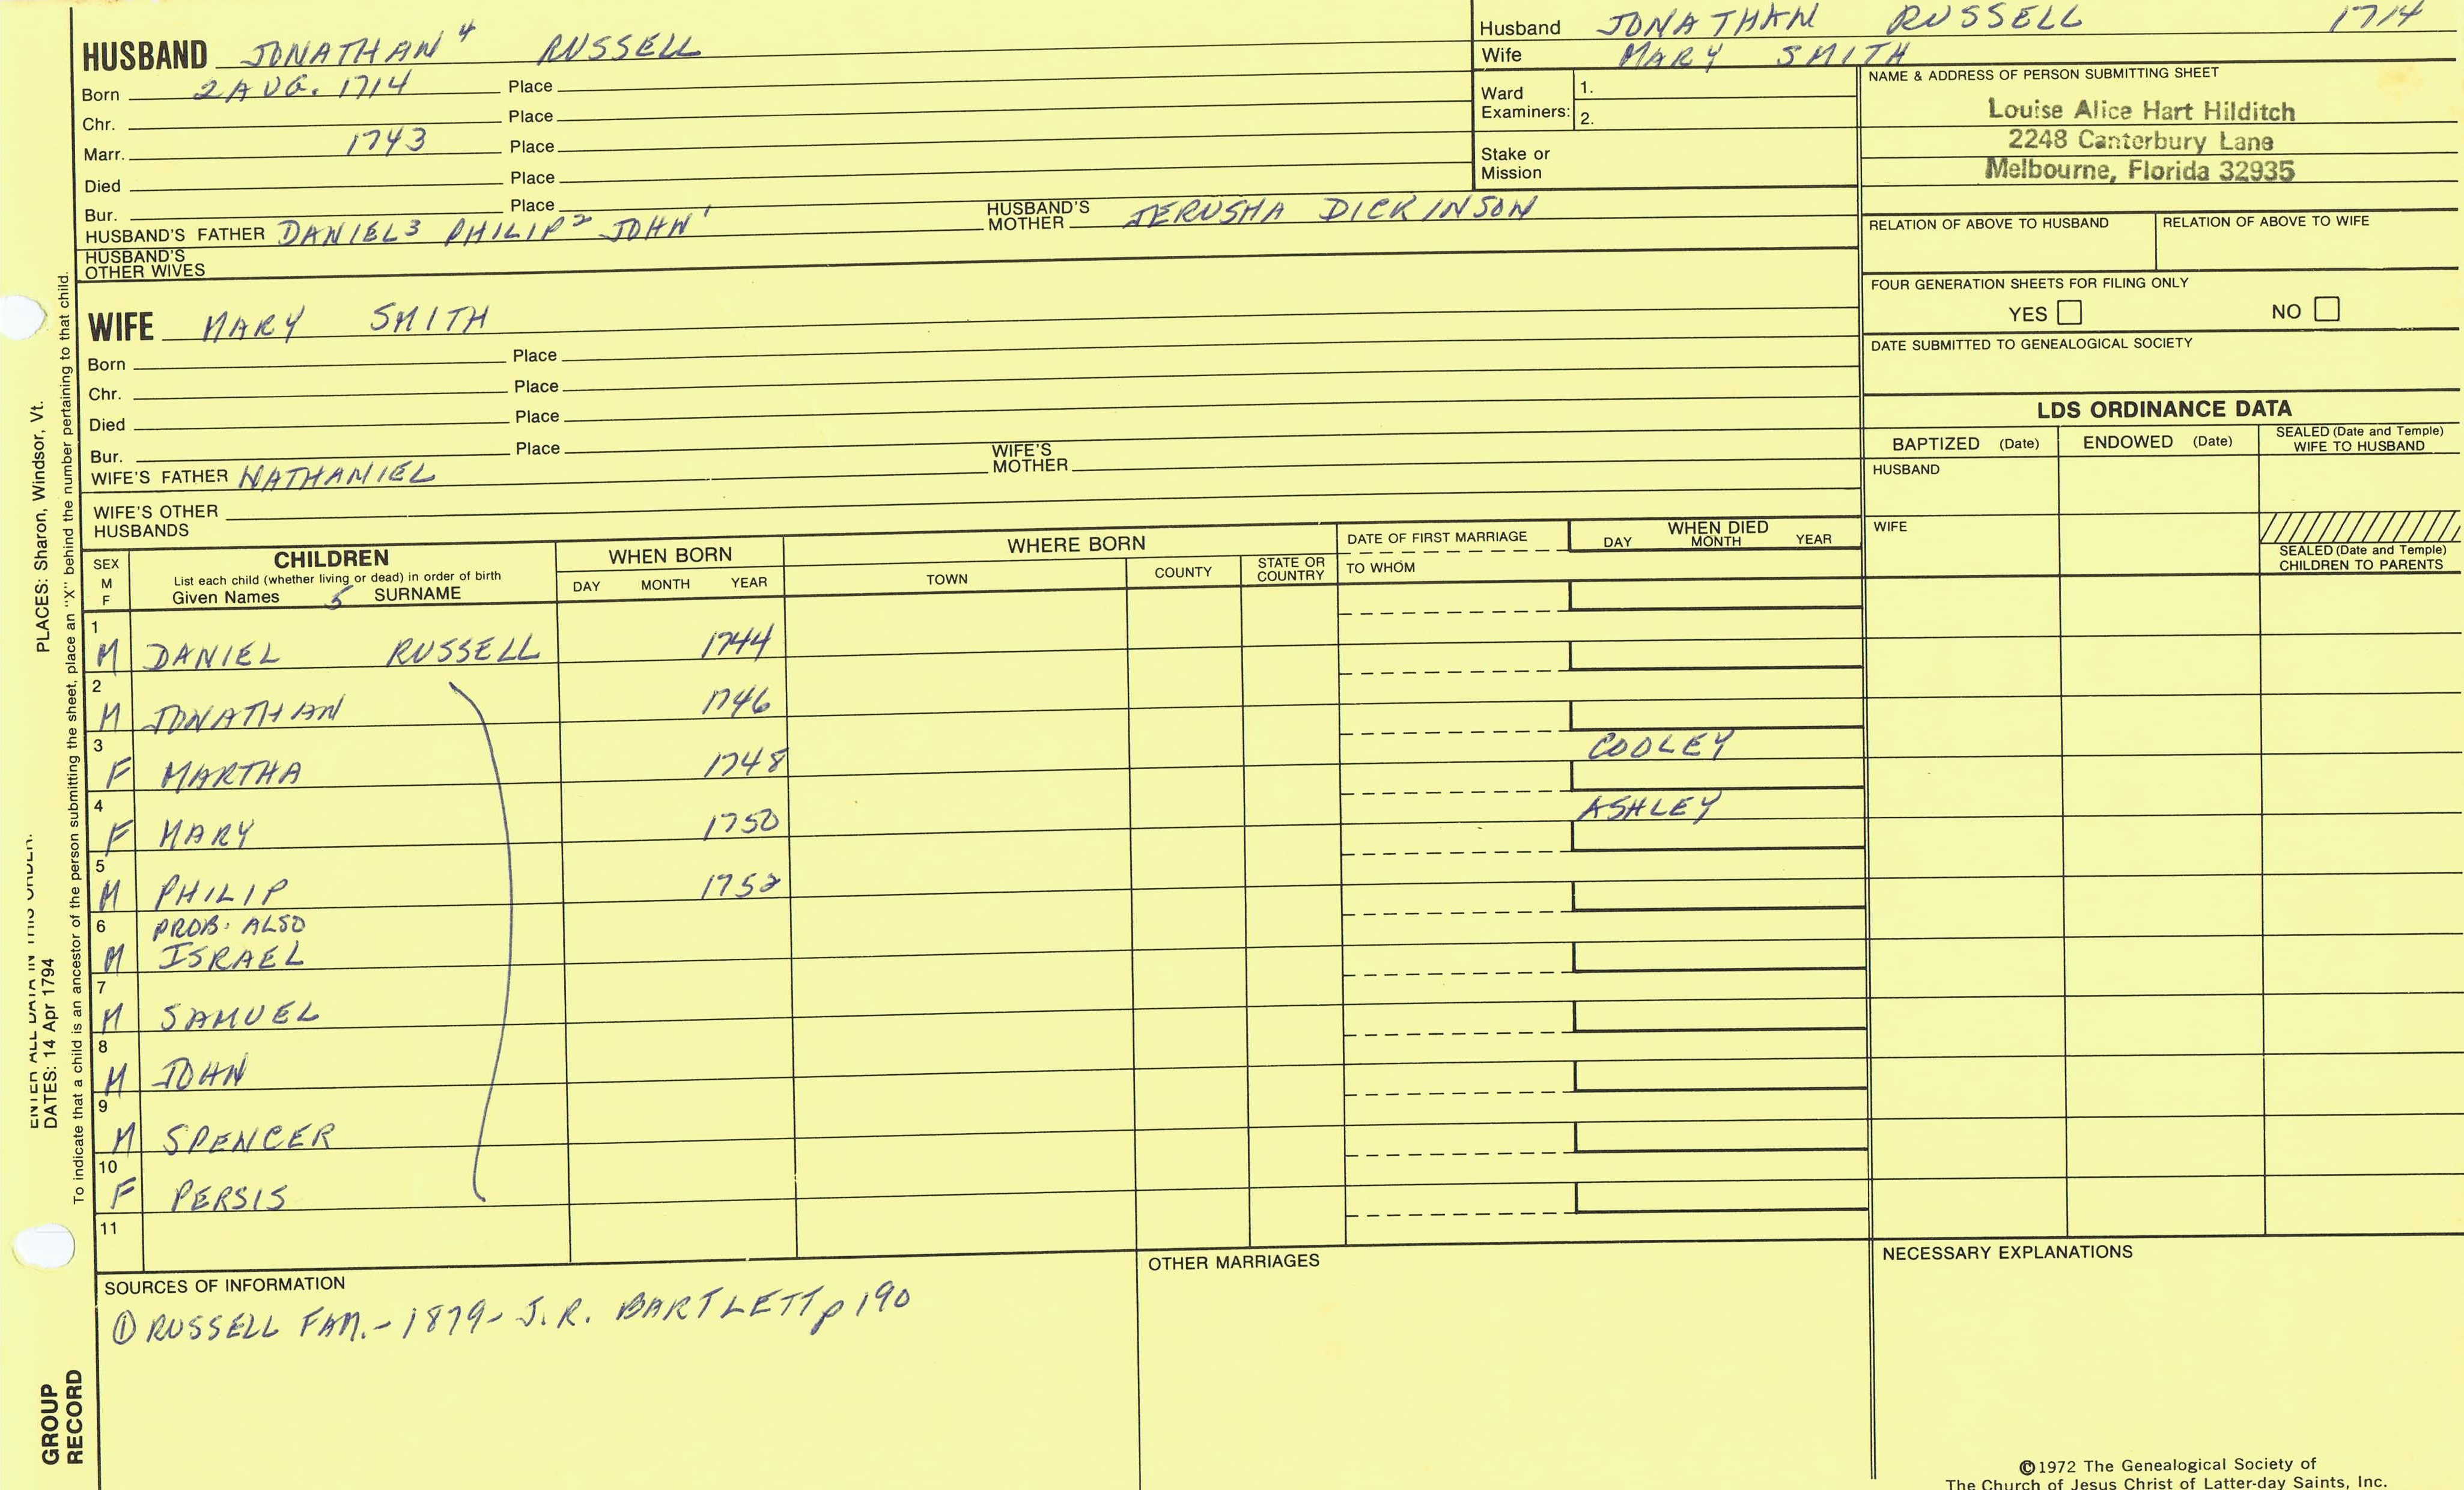 HUSBAND JONATHAN⁴ RUSSELL
Born 2 AUG. 1714 Place
Chr. Place
Marr. 1743 Place
Died Place
Bur. Place
HUSBAND'S FATHER DANIEL³ PHILIP² JOHN¹ HUSBAND'S MOTHER JERUSHA DICKINSON
HUSBAND'S OTHER WIVES
WIFE MARY SMITH
Born Place
Chr. Place
Died Place
Bur. Place
WIFE'S FATHER NATHANIEL WIFE'S MOTHER
WIFE'S OTHER HUSBANDS
Husband JONATHAN RUSSELL 1714
Wife MARY SMITH
Ward Examiners: 1.
2.
Stake or Mission
NAME & ADDRESS OF PERSON SUBMITTING SHEET
Louise Alice Hart Hilditch
2248 Canterbury Lane
Melbourne, Florida 32935
RELATION OF ABOVE TO HUSBAND RELATION OF ABOVE TO WIFE
FOUR GENERATION SHEETS FOR FILING ONLY
YES NO
DATE SUBMITTED TO GENEALOGICAL SOCIETY
LDS ORDINANCE DATA
BAPTIZED (Date) ENDOWED (Date) SEALED (Date and Temple) WIFE TO HUSBAND
HUSBAND
WIFE
SEALED (Date and Temple) CHILDREN TO PARENTS
SEX M F CHILDREN WHEN BORN WHERE BORN DATE OF FIRST MARRIAGE WHEN DIED
List each child (whether living or dead) in order of birth
Given Names 5 SURNAME DAY MONTH YEAR TOWN COUNTY STATE OR COUNTRY TO WHOM DAY MONTH YEAR
1 M DANIEL RUSSELL 1744
2 M JONATHAN 1746
3 F MARTHA 1748 COOLEY
4 F MARY 1750 ASHLEY
5 M PHILIP 1752
6 PROB. ALSO
M ISRAEL
7 M SAMUEL
8 M JOHN
9 M SPENCER
10 F PERSIS
11
SOURCES OF INFORMATION
① RUSSELL FAM. - 1879 - J.R. BARTLETT p 190
OTHER MARRIAGES
NECESSARY EXPLANATIONS
©1972 The Genealogical Society of
The Church of Jesus Christ of Latter-day Saints, Inc.
ENTER ALL DATA IN THIS ORDER:
PLACES: Sharon, Windsor, Vt.
DATES: 14 Apr 1794
To indicate that a child is an ancestor of the person submitting the sheet, place an "X" behind the number pertaining to that child.
GROUP
RECORD